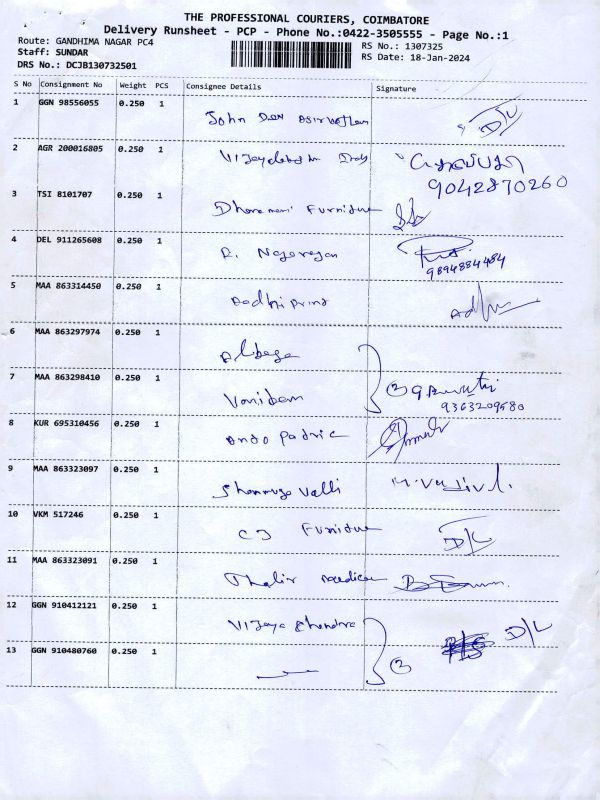 THE PROFESSIONAL COURIERS, COIMBATORE
Delivery Runsheet - PCP - Phone No.:0422-3505555 - Page No.:1
Route: GANDHIMA NAGAR PC4 RS No.: 1307325
Staff: SUNDAR RS Date: 18-Jan-2024
DRS No.: DCJB130732501
S No Consignment No Weight PCS Consignee Details Signature
1 GGN 98556055 0.250 1 John D/L
2 AGR 200016805 0.250 1
9042870260
3 TSI 8101707 0.250 1 Dharamani Furniture
4 DEL 911265608 0.250 1 R. Nagarajan
9894884484
5 MAA 863314450 0.250 1 Aadhi prins
6 MAA 863297974 0.250 1
7 MAA 863298410 0.250 1 ②
9363209580
8 KUR 695310456 0.250 1 Ando Padric
9 MAA 863323097 0.250 1 Shanmuga valli
10 VKM 517246 0.250 1 CJ Furniture D/L
11 MAA 863323091 0.250 1 Thalir
12 GGN 910412121 0.250 1 Vijaya Chandra D/L
13 GGN 910480760 0.250 1 ②